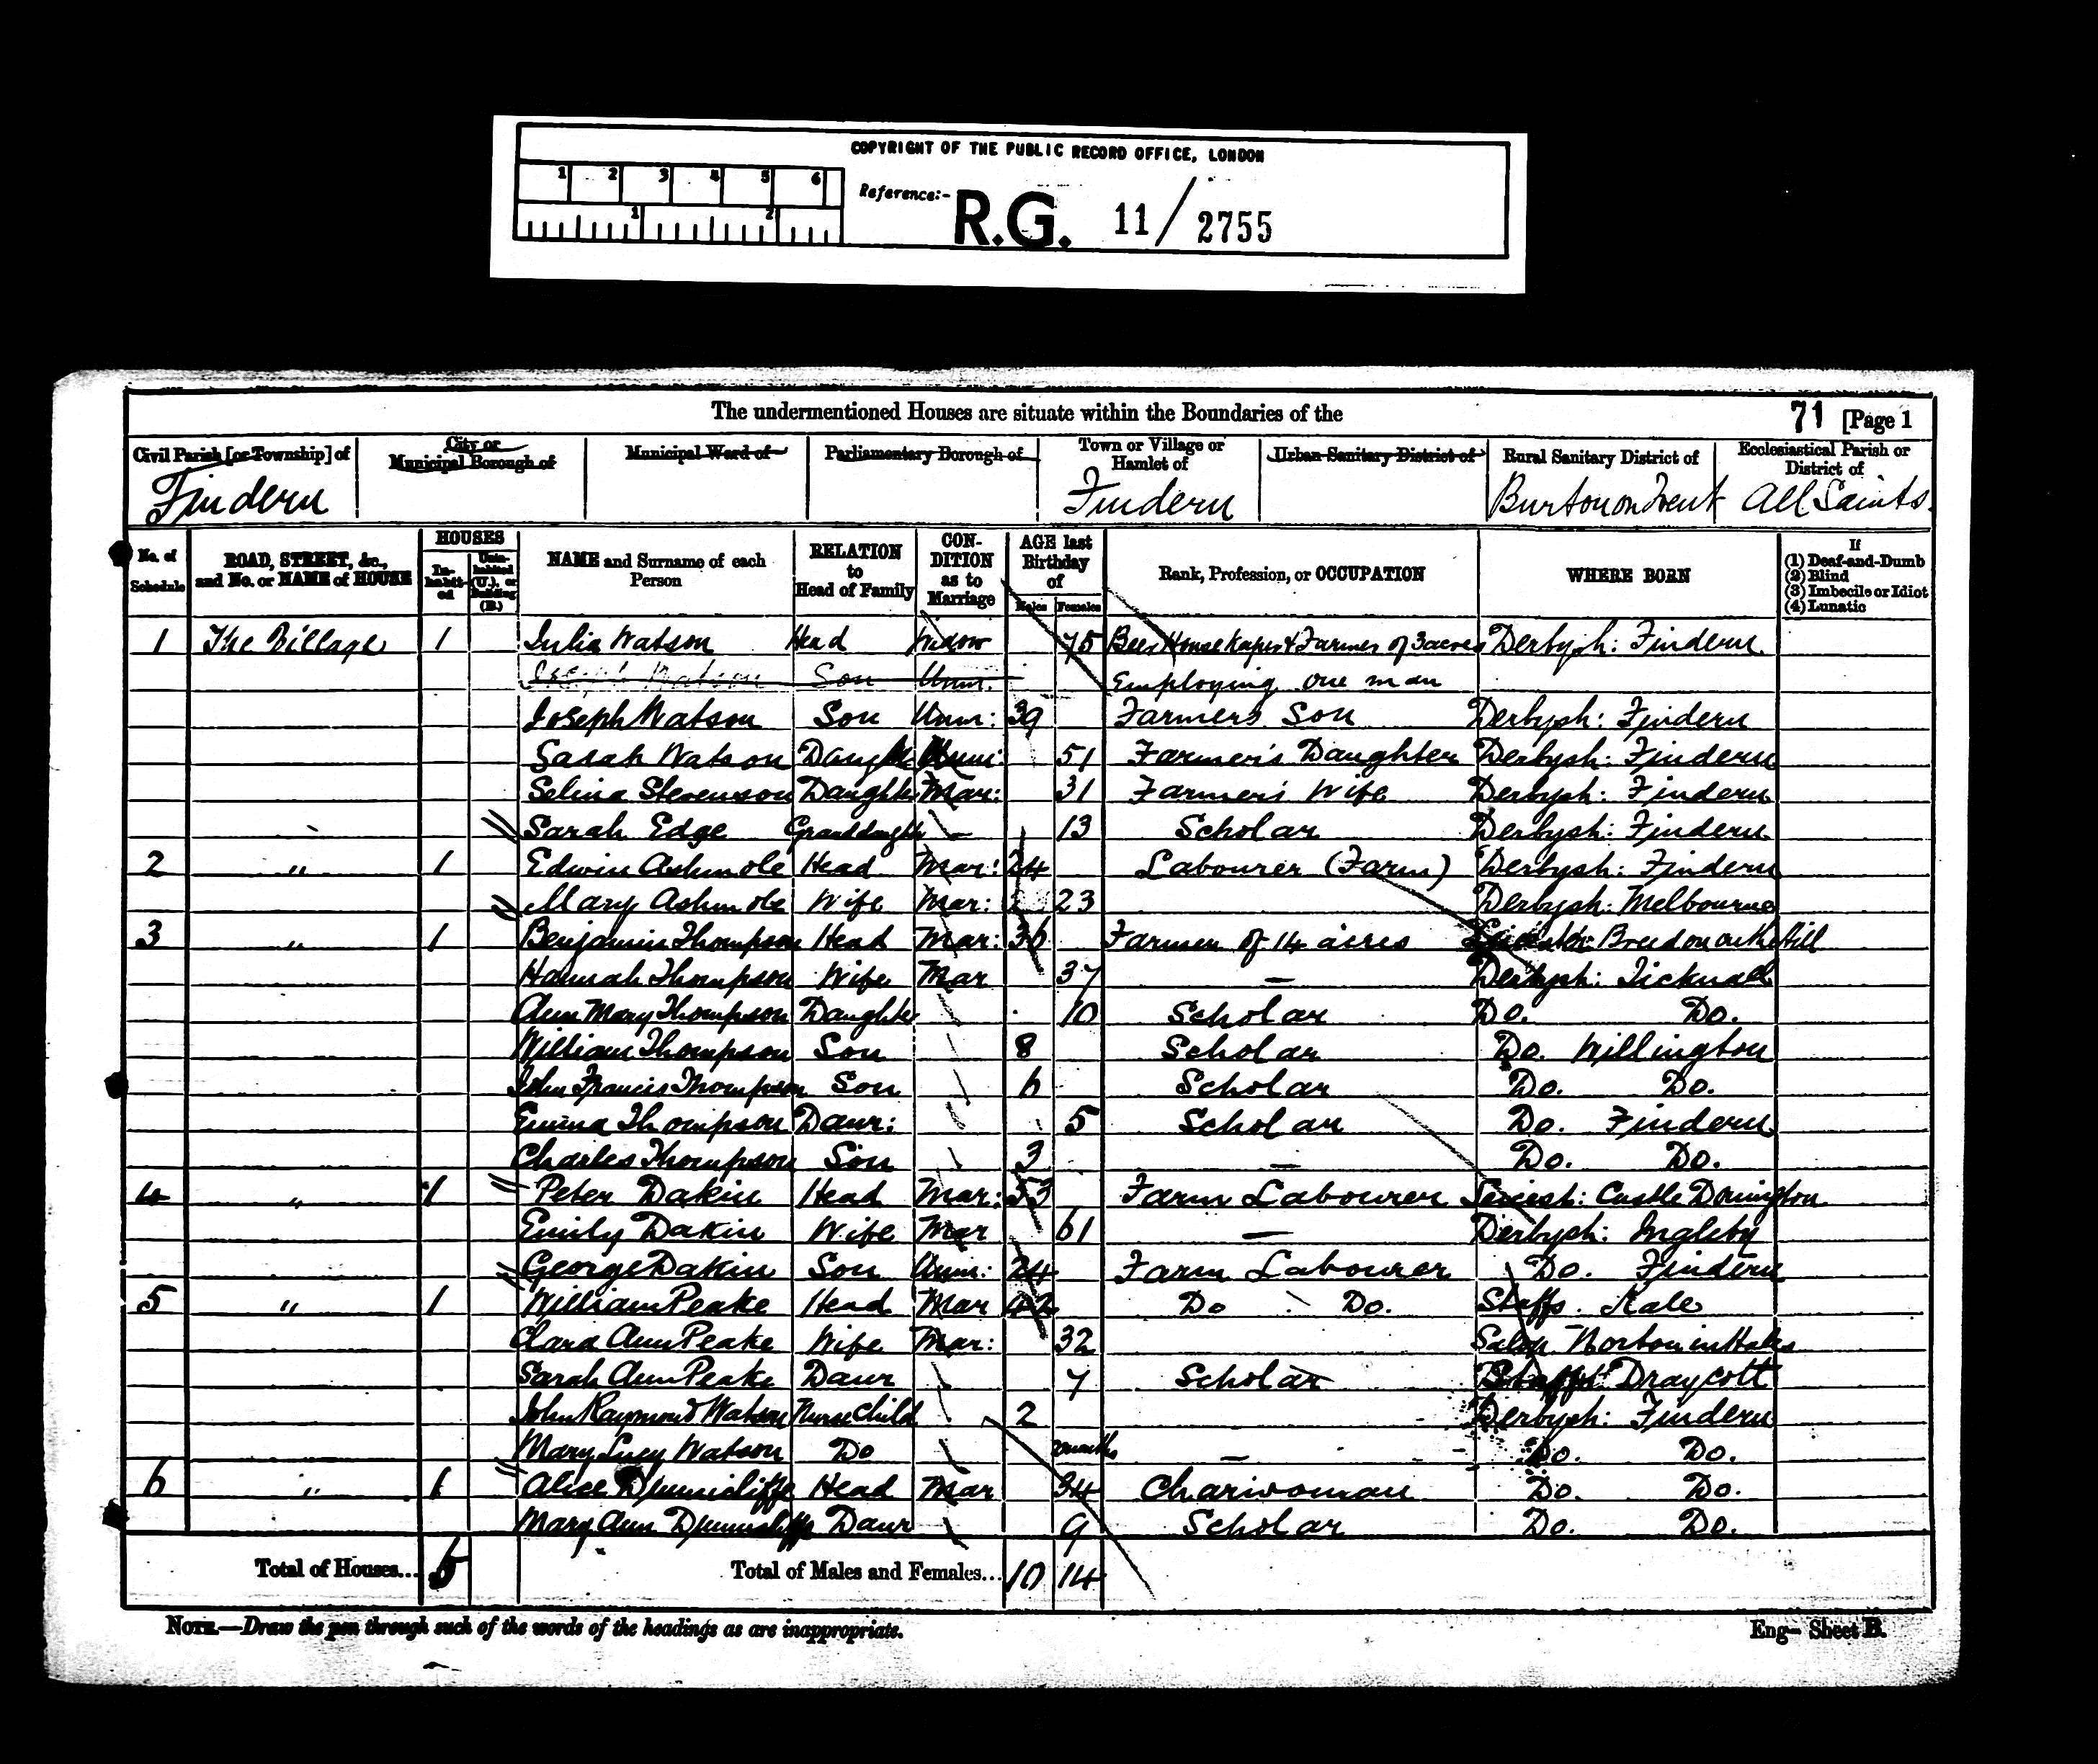 COPYRIGHT OF THE PUBLIC RECORD OFFICE, LONDON
1 2 3 4 5 6
1 2
Reference:- R.G. 11/2755
The undermentioned Houses are situate within the Boundaries of the 71 [Page 1
Civil Parish [or Township] of City or Municipal Borough of Municipal Ward of Parliamentary Borough of Town or Village or Hamlet of Urban Sanitary District of Rural Sanitary District of Ecclesiastical Parish or District of
Findern Findern Burton on Trent All Saints.
No. of Schedule ROAD, STREET, &c., and No. or NAME of HOUSE HOUSES Inhabited Uninhabited (U.), or Building (B.) NAME and Surname of each Person RELATION to Head of Family CONDITION as to Marriage AGE last Birthday of Males Females Rank, Profession, or OCCUPATION WHERE BORN If (1) Deaf-and-Dumb (2) Blind (3) Imbecile or Idiot (4) Lunatic
1 The Village 1 Julia Watson Head Widow 75 Beer House Keeper & Farmer of 3 acres Derbysh: Findern
Joseph Watson Son Unm. Employing one man
Joseph Watson Son Unm: 39 Farmers Son Derbysh: Findern
Sarah Watson Daughter Unm: 51 Farmer's Daughter Derbysh: Findern
Selina Stevenson Daughter Mar: 31 Farmer's Wife Derbysh: Findern
Sarah Edge Granddaughter — 13 Scholar Derbysh: Findern
2 " 1 Edwin Ashmole Head Mar: 24 Labourer (Farm) Derbysh: Findern
Mary Ashmole Wife Mar: 23 Derbysh: Melbourne
3 " 1 Benjamin Thompson Head Mar: 36 Farmer of 14 acres Breedon on the Hill
Hannah Thompson Wife Mar 37 — Derbysh: Ticknall
Ann Mary Thompson Daughter 10 Scholar Do. Do.
William Thompson Son 8 Scholar Do. Willington
John Francis Thompson Son 6 Scholar Do. Do.
Emma Thompson Daur: 5 Scholar Do. Findern
Charles Thompson Son 3 — Do. Do.
4 " 1 Peter Dakin Head Mar: 53 Farm Labourer Leicest: Castle Donington
Emily Dakin Wife Mar 61 — Derbysh: Ingleby
George Dakin Son Unm: 24 Farm Labourer Do. Findern
5 " 1 William Peake Head Mar 42 Do Do. Staffs. Kale
Clara Ann Peake Wife Mar: 32 Salop Norton in Hales
Sarah Ann Peake Daur 7 Scholar Staffs: Draycott
John Raymond Watson Nurse Child 2 Derbysh: Findern
Mary Lucy Watson Do months — Do. Do.
6 " 1 Alice Dunnicliffe Head Mar 34 Charwoman Do. Do.
Mary Ann Dunnicliffe Daur 9 Scholar Do. Do.
Total of Houses... 6 Total of Males and Females... 10 14
NOTE.—Draw the pen through such of the words of the headings as are inappropriate. Eng— Sheet B.